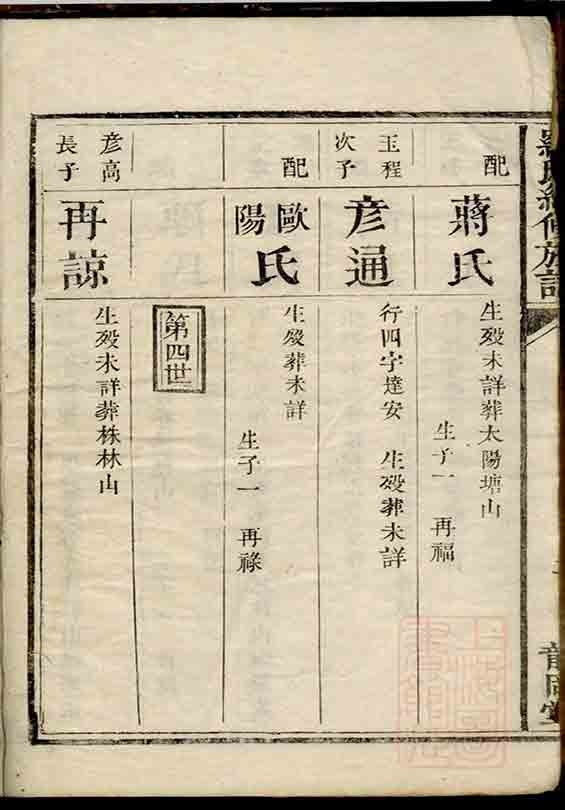 氏續修族譜
配
蔣氏
生殁未詳葬太陽塘山
生子一　再福
玉程
次子
彥通
行四字達安　生殁葬未詳
配
歐陽氏
生殁葬未詳
生子一　再祿
第四世
彥高
長子
再諒
生殁未詳葬株林山